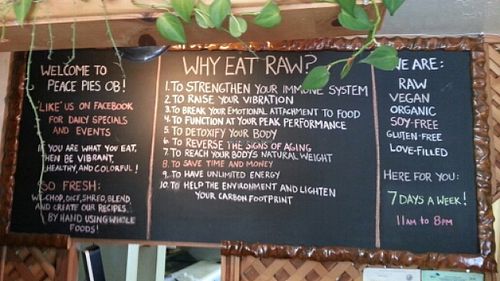 WELCOME TO
PEACE PIES OB!
'LIKE' US ON FACEBOOK
FOR DAILY SPECIALS
AND EVENTS
IF YOU ARE WHAT YOU EAT,
THEN BE VIBRANT,
HEALTHY, AND COLORFUL!
SO FRESH:
WE CHOP, DICE, SHRED, BLEND,
AND CREATE OUR RECIPES
BY HAND USING WHOLE
FOODS!
WHY EAT RAW?
1. TO STRENGTHEN YOUR IMMUNE SYSTEM
2. TO RAISE YOUR VIBRATION
3. TO BREAK YOUR EMOTIONAL ATTACHMENT TO FOOD
4. TO FUNCTION AT YOUR PEAK PERFORMANCE
5. TO DETOXIFY YOUR BODY
6. TO REVERSE THE SIGNS OF AGING
7. TO REACH YOUR BODY'S NATURAL WEIGHT
8. TO SAVE TIME AND MONEY
9. TO HAVE UNLIMITED ENERGY
10. TO HELP THE ENVIRONMENT AND LIGHTEN
YOUR CARBON FOOTPRINT
WE ARE:
RAW
VEGAN
ORGANIC
SOY-FREE
GLUTEN-FREE
LOVE-FILLED
HERE FOR YOU:
7 DAYS A WEEK!
11am to 8pm